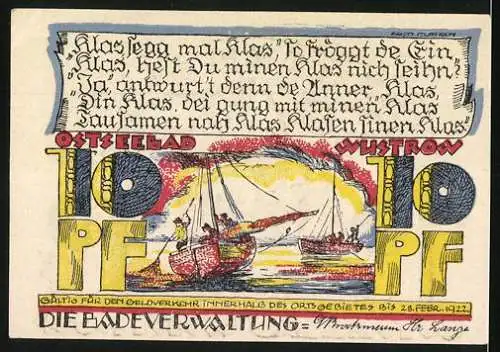 „Klas segg mal Klas,“ so fröggt de Ein
„Klas, hest Du minen Klas nich seihn?“
„Ja“, antwurt't denn de Anner „Klas,
Din Klas, dei gung mit minen Klas
Tausamen nah Klas Klasen sinen Klas“
OSTSEEBAD WUSTROW
10 10
PF PF
GÜLTIG FÜR DEN GELDVERKEHR INNERHALB DES ORTSGEBIETES BIS 28. FEBR. 1922
DIE BADEVERWALTUNG =